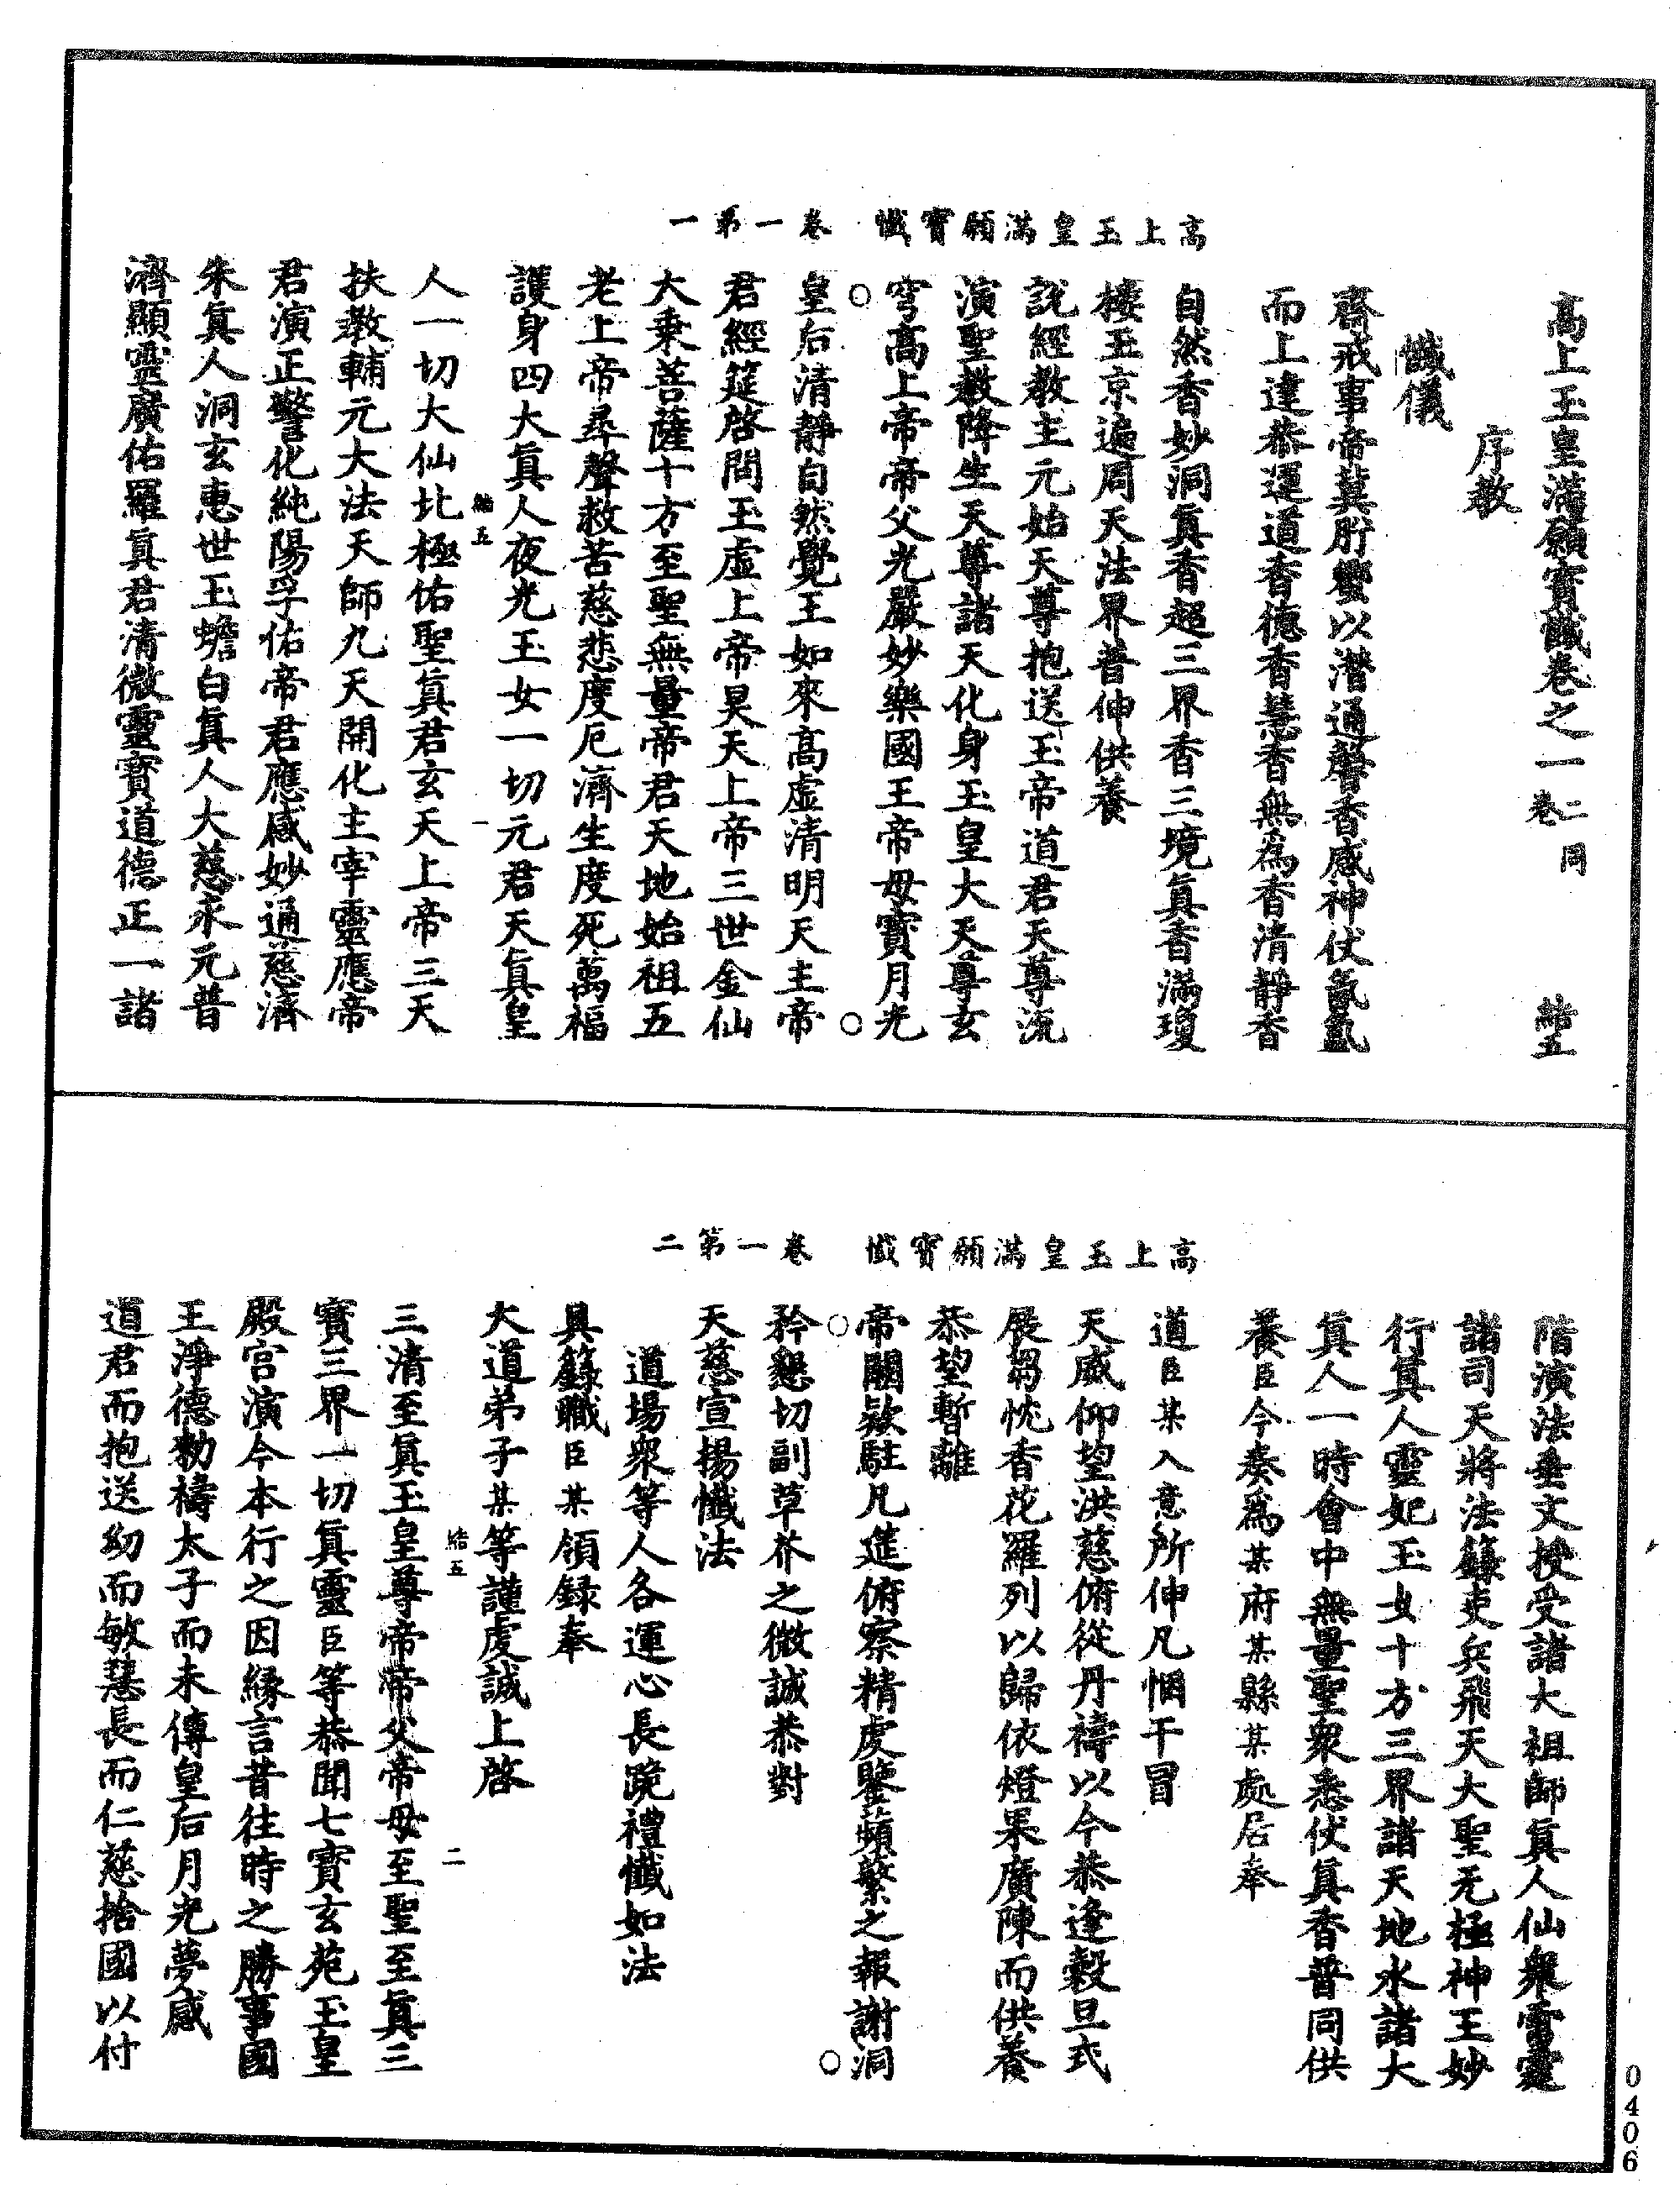 高上玉皇滿願寶懺卷之一 二卷同 結五
序教
懺儀
齋戒事帝冀肸蠁以潛通馨香感神伏氤氳
而上達恭運道香德香慧香無為香清靜香
自然香妙洞真香超三界香三境真香滿瓊
樓玉京遍周天法界普伸供養
說經教主元始天尊抱送玉帝道君天尊流
演聖教降生天尊諸天化身玉皇大天尊玄
穹高上帝帝父光嚴妙樂國王帝母寶月光
高上玉皇滿願寶懺 卷一第一
皇后清靜自然覺王如來高虛清明天主帝
君經筵啓問玉虛上帝昊天上帝三世金仙
大乘菩薩十方至聖無量帝君天地始祖五
老上帝尋聲救苦慈悲度厄濟生度死萬福
護身四大真人夜光玉女一切元君天真皇
結五 一
人一切大仙北極佑聖真君玄天上帝三天
扶教輔元大法天師九天開化主宰靈應帝
君演正警化純陽孚佑帝君應感妙通慈濟
朱真人洞玄惠世玉蟾白真人大慈永元普
濟顯靈廣佑羅真君清微靈寶道德正一諸
階演法垂文授受諸大祖師真人仙衆雷霆
諸司天將法籙吏兵飛天大聖无極神王妙
行真人靈妃玉女十方三界諸天地水諸大
真人一時會中無量聖衆悉仗真香普同供
養臣今奏為某府某縣某處居奉
道臣某入意所伸凡悃干冒
天威仰望洪慈俯從丹禱以今恭逢穀旦式
展芻忱香花羅列以歸依燈果廣陳而供養
恭望暫離
帝闕欻駐凡筵俯察精虔鑒蘋蘩之報謝洞
高上玉皇滿願寶懺 卷一第二
矜懇切副草芥之微誠恭對
天慈宣揚懺法
道場衆等人各運心長跪禮懺如法
具籙職臣某領録奉
大道弟子某等謹虔誠上啓
結五 二
三清至真玉皇尊帝帝父帝母至聖至真三
寶三界一切真靈臣等恭聞七寶玄苑玉皇
殿宮演今本行之因緣言昔往時之勝事國
王淨德勅禱太子而未傳皇后月光夢感
道君而抱送幼而敏慧長而仁慈捨國以付
0406